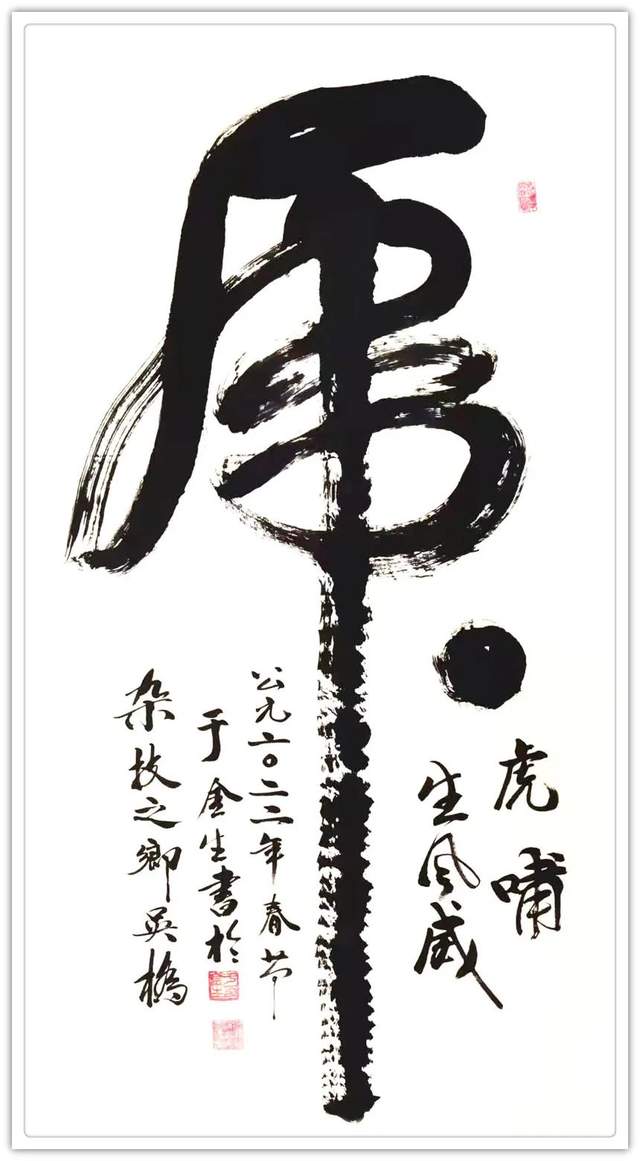 虎
虎嘯
生风威
公元二〇二二年春节
于金生書於
杂技之鄉吴橋